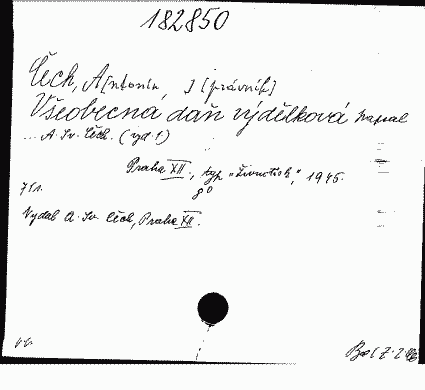 182850
Čech, A[ntonín, J [právník]
Všeobecná daň výdělková napsal
... A. Sv. Čech. (vyd. 1)
Praha XII., typ "Živnotisk", 1945.
8°
Vydal A. Sv. Čech, Praha XII.